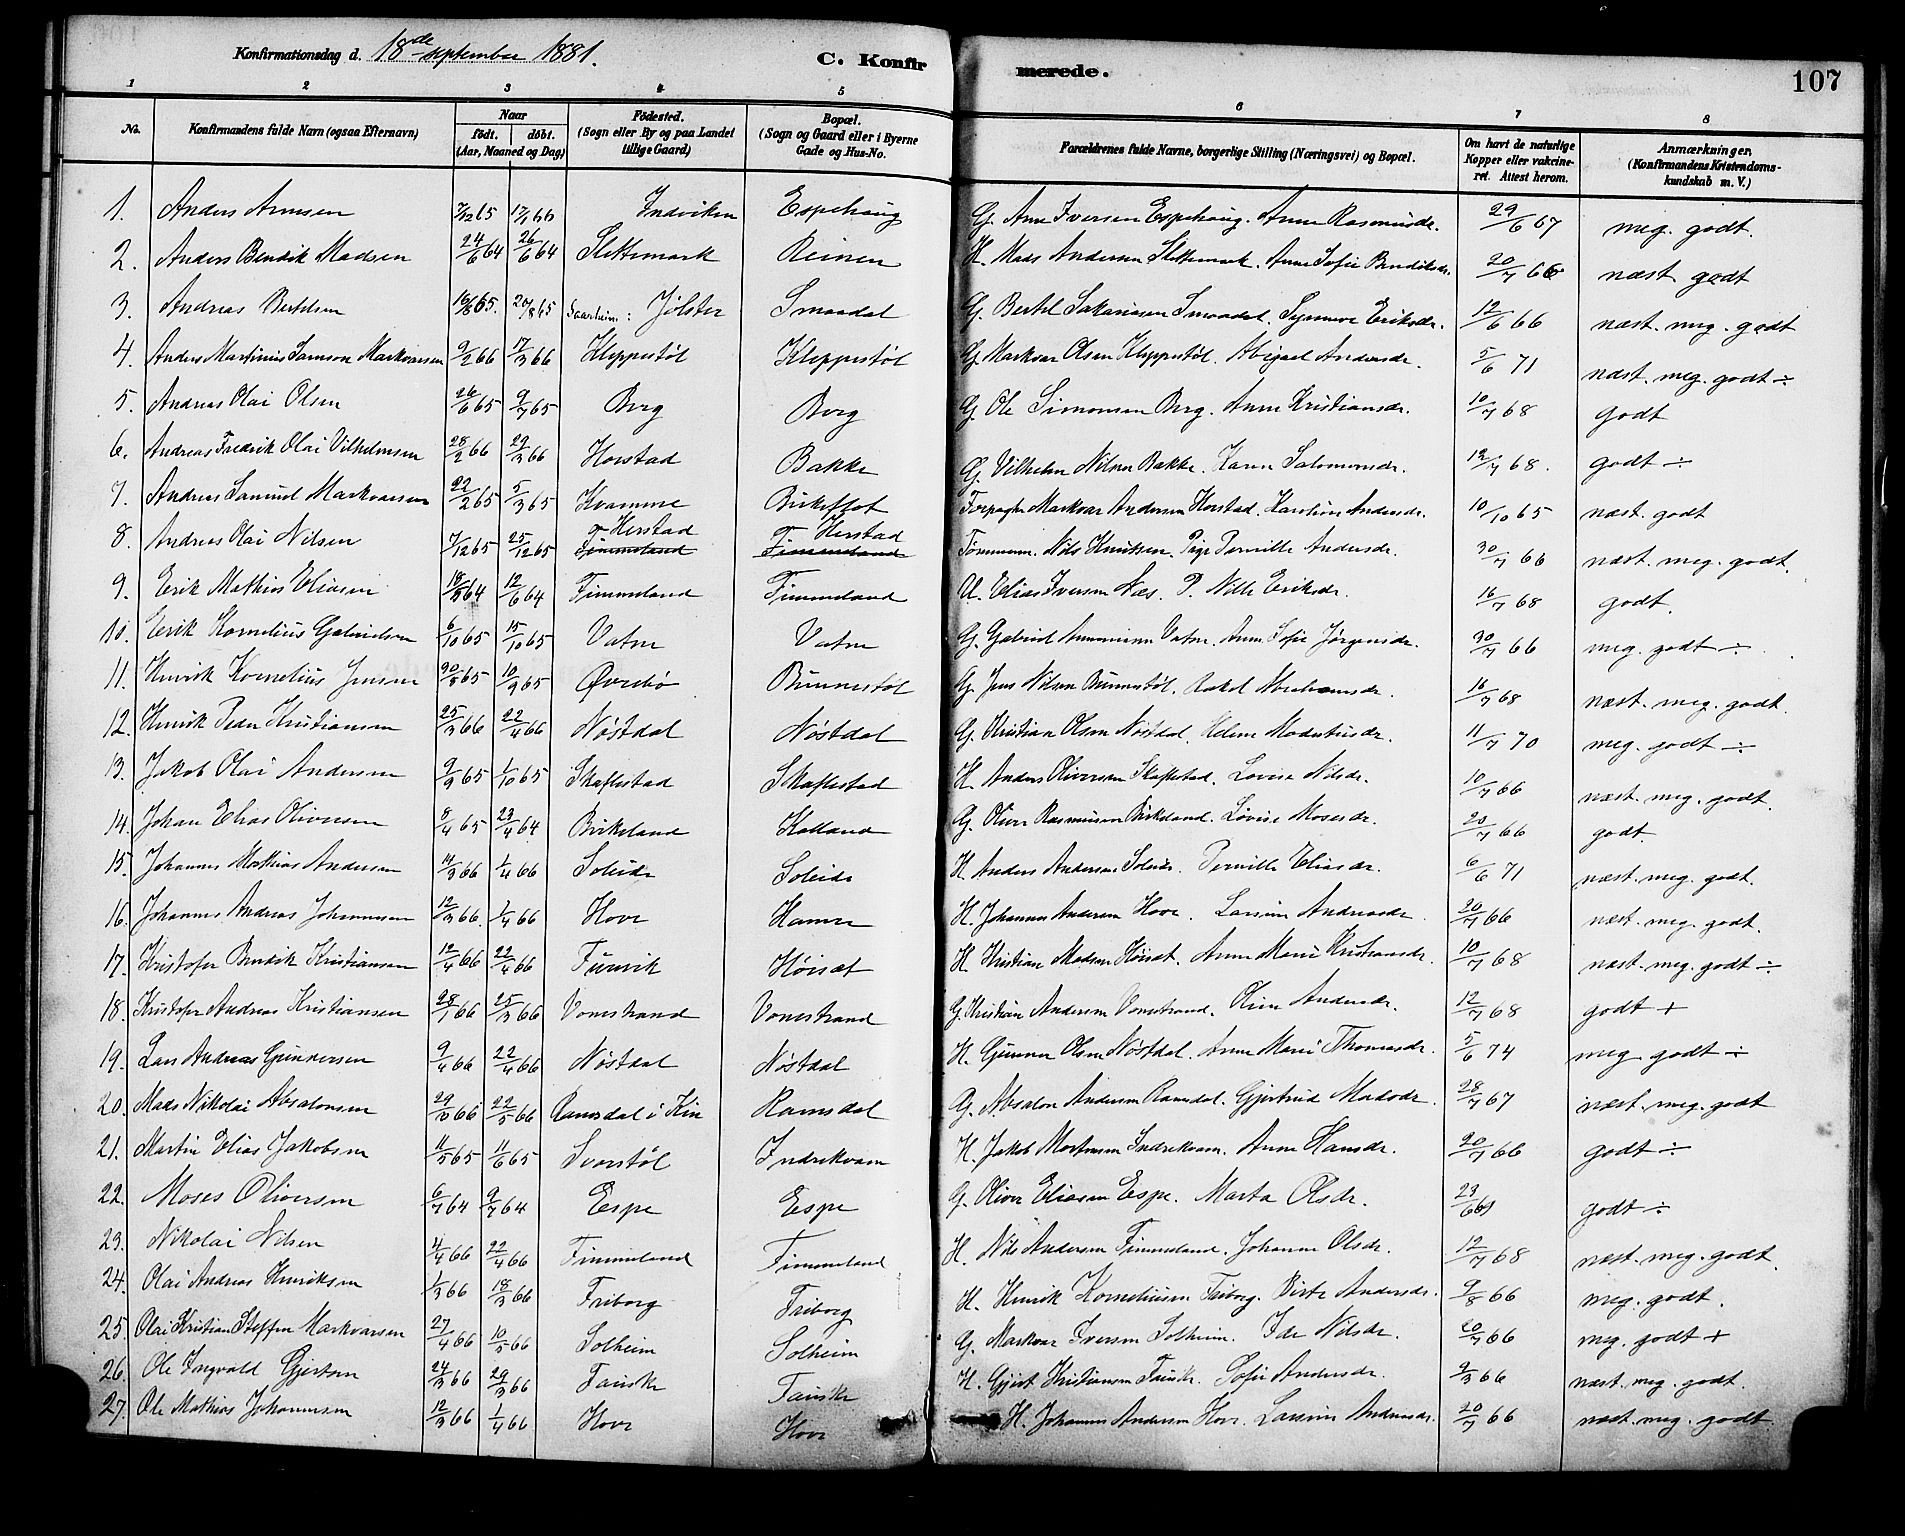 Konfirmationsdag d. 18de september 1881. C. Konfirmerede. 107
1 2 3 4 5 6 7 8
No. Konfirmandens fulde Navn (ogsaa Efternavn) Naar födt. döbt. (Aar, Maaned og Dag) Födested. (Sogn eller By og paa Landet tillige Gaard) Bopæl. (Sogn og Gaard eller i Byerne Gade og Hus-No. Forældrenes fulde Navne, borgerlige Stilling (Næringsvei) og Bopæl. Om havt de naturlige Kopper eller vakcineret. Attest herom. Anmærkninger, (Konfirmandens Kristendomskundskab m. V.)
1. Anders Arnesen 7/12 65 17/1 66 Indviken Espehaug G. Arne Iversen Espehaug. Anne Rasmusdr. 29/6 67 meg. godt.
2. Anders Bendik Madsen 24/6 64 26/6 64 Slettemark Reinen H. Mads Andersen Slettemark. Anne Sofie Bendiksdr. 20/7 66 næst godt
3. Andreas Bertelsen 16/8 65. 20/8 65 Jølster Smaadal G. Bertel Sakariasen Smaadal. Synneve Eriksdr. 12/6 66 næst. meg. godt
4. Anders Martinus Samson Markvarsen 9/2 66 17/3 66 Kleppestøl Kleppestøl G. Markvar Olsen Kleppestøl. Abigael Andersdr. 5/6 71 næst. meg. godt ÷
5. Andreas Olai Olsen 26/6 65 9/7 65 Berg Berg G. Ole Simonsen Berg. Anne Kristiansdr. 10/7 68 godt
6. Andreas Fredrik Olai Vilhelmsen 28/2 66 29/3 66 Horstad Bakke G. Vilhelm Nilsen Bakke. Karen Salomonsdr. 12/7 68. godt ÷
7. Andreas Samuel Markvarsen 22/2 65 5/3 65 Kvamme Birkeflot Forpagter Markvar Andersen Horstad. Karoline Andersdr. 10/10 65 næst. godt
8. Andreas Olai Nilsen 7/12 65 25/12 65 Herstad Timmeland Herstad Timmeland Tømmerm. Nils Knutsen. Pige Pernille Andersdr. 30/7 66 næst. meg. godt.
9. Erik Mathias Eliasen 18/5 64 12/6 64 Timmeland Timmeland U. Elias Iversen Næs. P. Nille Eriksdr. 16/7 68 godt.
10. Erik Kornelius Gabrielsen 6/10 65 15/10 65 Vatne Vatne G. Gabriel Vatne. Anne Sofie Jørgensdr. 30/7 66 meg. godt ÷
11. Henrik Kornelius Jensen 65 10/9 65 Øvrebø Bunnestøl G. Jens Nilsen Bunnestøl. Rakel Abrahamsdr. 16/7 68 næst. meg. godt.
12. Henrik Peder Kristiansen 25/3 66 22/4 66 Nøstdal Nøstdal G. Kristian Olsen Nøstdal. Helene 11/7 70 meg. godt ÷
13. Jakob Olai Andersen 9/9 65 1/10 65 Skaflestad Skaflestad H. Anders Oliversen Skaflestad. Lovise Nilsdr. 10/7 66 næst. meg. godt.
14. Johan Elias Oliversen 8/4 65 23/4 64 Birkeland Kalland G. Oliver Rasmussen Birkeland. Lovise Mosesdr. 20/7 66 godt.
15. Johannes Mathias Andersen 14/3 66 1/4 66 Soleide Soleide H. Anders Andersen Soleide. Pernille Eliasdr. 6/6 71 næst. meg. godt.
16. Johannes Andreas Johannesen 12/3 66. 1/4 66 Hove Hamre H. Johannes Andersen Hove. Larsine Andreasdr. 20/7 66 næst. meg. godt.
17. Kristofer Bendik Kristiansen 12/4 66 22/4 66 Furuvik Høisæt H. Kristian Madsen Høisæt. Anne Marie Kristiansdr. 10/7 68 næst. meg. godt ÷
18. Kristofer Andreas Kristiansen 28/1 66 25/3 66 Vonestrand Vonestrand G. Kristian Andersen Vonestrand. Oline Andersdr. 12/7 68 godt +
19. Lars Andreas Gunnersen 9/4 66 22/4 66 Nøstdal Nøstdal H. Gunner Olsen Nøstdal. Anne Marie Thomasdr. 5/6 74 meg. godt ÷
20. Mads Nikolai Absalonsen 29/10 66 22/5 66 Ramsdal i Kin Ramsdal G. Absalon Andersen Ramsdal. Gjertrud Madsdr. 28/7 67 næst. meg. godt
21. Martin Elias Jakobsen 11/5 65 11/6 65 Svorstøl Indrekvam H. Jakob Mortensen Indrekvam. Anne Hansdr. 20/7 66 godt ÷
22. Moses Oliversen 6/7 64 9/7 64 Espe Espe G. Oliver Eliasen Espe. Marta Olsdr. 23/6 69 godt ÷
23. Nikolai Nilsen 4/4 66 22/4 66 Timmeland Timmeland H. Nils Andersen Timmeland. Johanne Olsdr. 12/7 68 næst. meg. godt.
24. Olai Andreas Henriksen 1/3 66 18/3 66 Friborg Friborg H. Henrik Korneliusen Friborg. Birte Andersdr. 9/8 66 meg. godt.
25. Olai Kristian Steffen Markvarsen 27/4 66 10/5 66 Solheim Solheim G. Markvar Iversen Solheim. Ida Nilsdr. 20/7 66 meg. godt +
26. Ole Ingvald Gjertsen 24/3 66 29/3 66 Fauske Fauske H. Gjert Kristiansen Fauske. Sofie Andersdr. 9/3 66 næst. meg. godt.
27. Ole Mathias Johannesen 12/3 66 1/4 66 Hove Hove H. Johannes Andersen Hove. Larsine Andreasdr. 20/7 66 næst. meg. godt